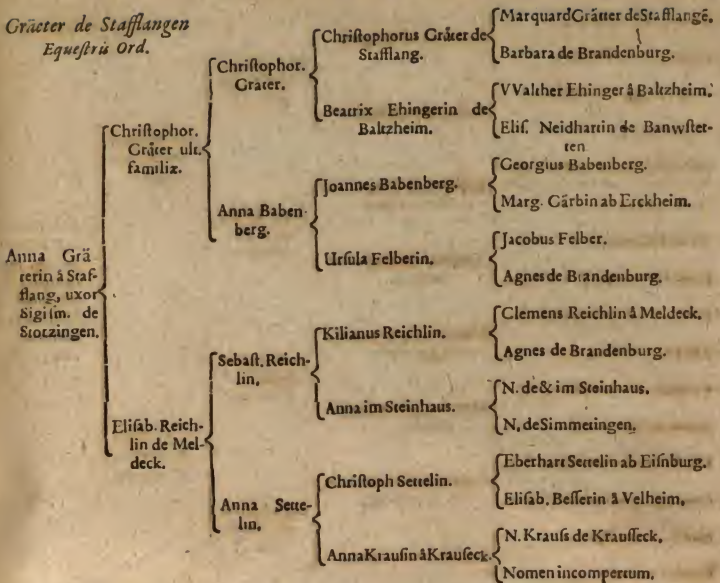 Gräeter de Stafflangen
Equeſtris Ord.
Anna Grä
terin à Staf-
flang, uxor
Sigiſm. de
Stotzingen.
Chriſtophor.
Gräter ult.
familiæ.
Eliſab. Reich-
lin de Mel-
deck.
Chriſtophor.
Grater.
Anna Baben-
berg.
Sebaſt. Reich-
lin.
Anna Sette-
lin.
Chriſtophorus Gräter de
Stafflang.
Beatrix Ehingerin de
Baltzheim.
Joannes Babenberg.
Urſula Felberin.
Kilianus Reichlin.
Anna im Steinhaus.
Chriſtoph Settelin.
Anna Krauſin à Krauſeck.
Marquard Grätter de Stafflangē.
Barbara de Brandenburg.
VValther Ehinger à Baltzheim.
Eliſ. Neidhartin de Banwſtet-
ten
Georgius Babenberg.
Marg. Gärbin ab Erckheim.
Jacobus Felber.
Agnes de Brandenburg.
Clemens Reichlin à Meldeck.
Agnes de Brandenburg.
N. de & im Steinhaus.
N. de Simmetingen.
Eberhart Settelin ab Eiſnburg.
Eliſab. Beſſerin à Velheim.
N. Krauſs de Krauſſeck.
Nomen incompertum.